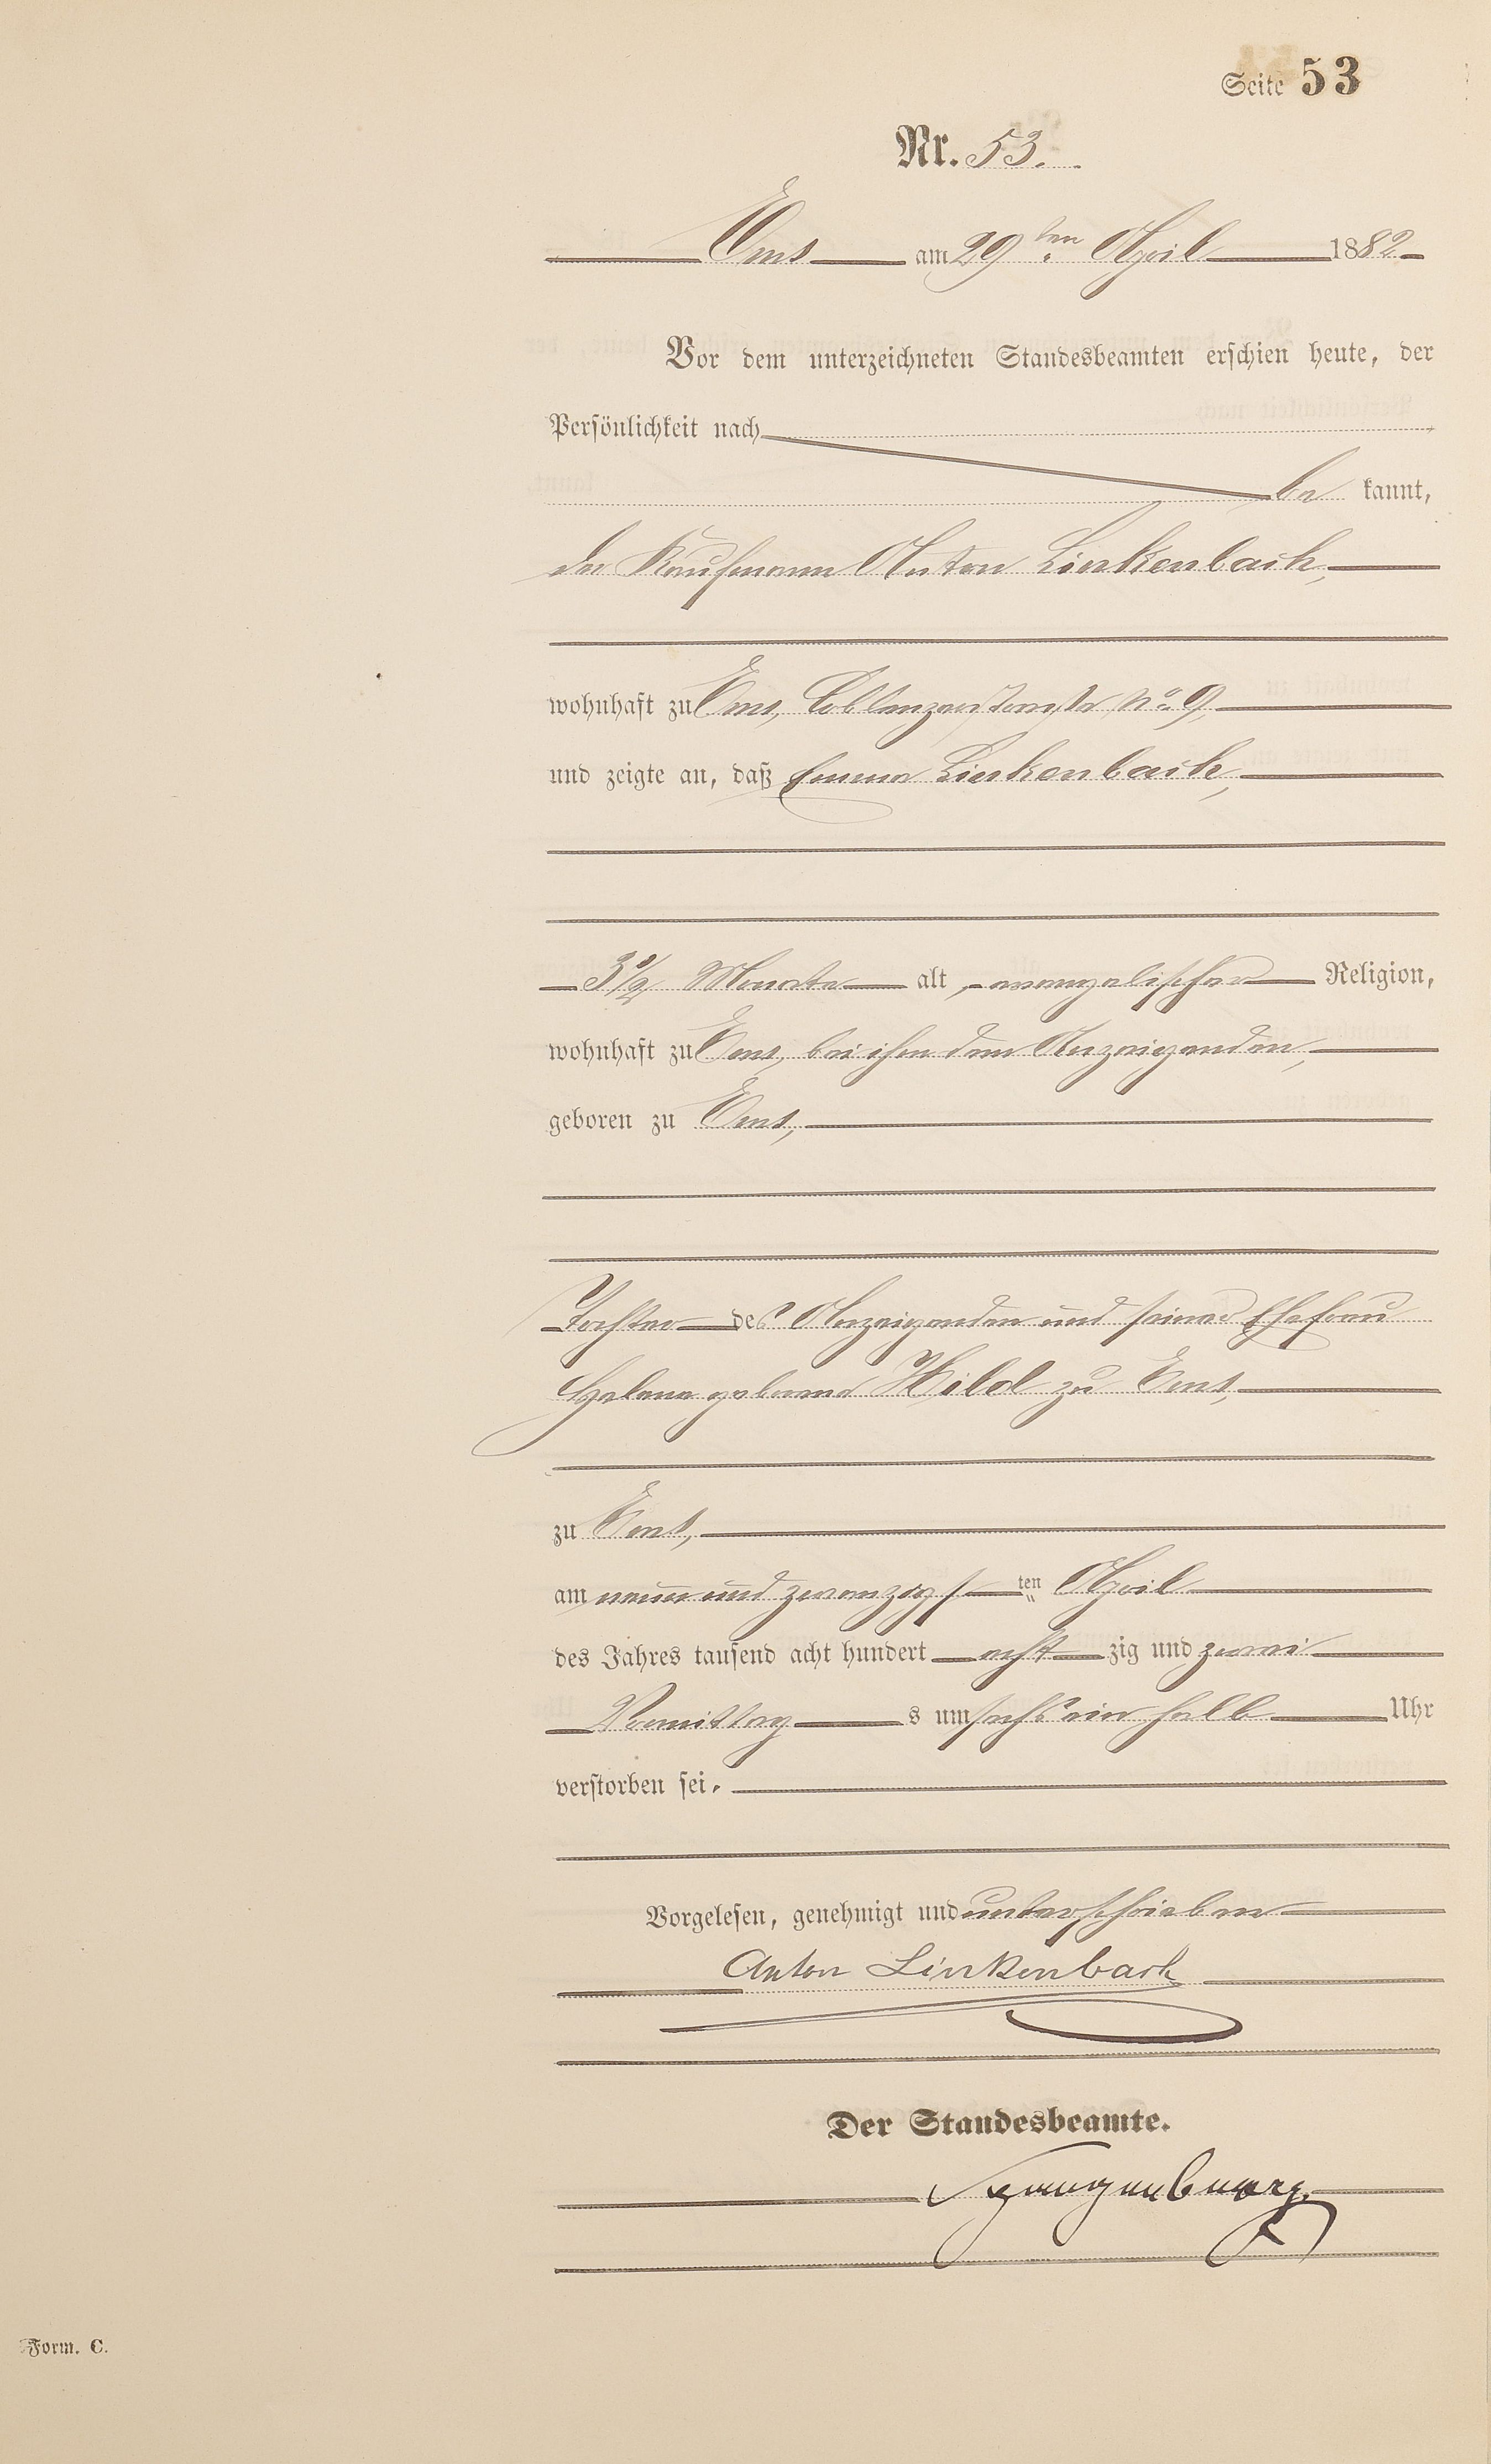 Seite 53
Nr. 53.
Ems am 29ten April 1882
Vor dem unterzeichneten Standesbeamten erschien heute, der
Persönlichkeit nach
be kannt,
der Kaufmann Anton Linkenbach,
wohnhaft zu Ems, Coblenzerstraße No 9,
und zeigte an, daß Emma Linkenbach,
3 1/2 Monate alt, evangelischer Religion,
wohnhaft zu Ems, bei ihm dem Anzeigenden,
geboren zu Ems,
Tochter des Anzeigenden und seiner Ehefrau
Helene geborene Hild zu Ems,
zu Ems,
am neun und zwanzigsten April
des Jahres tausend acht hundert acht zig und zwei
Vormittags um sechs ein halb Uhr
verstorben sei.
Vorgelesen, genehmigt und unterschrieben
Anton Linkenbach
Der Standesbeamte.
Spangenberg.
Form. C.